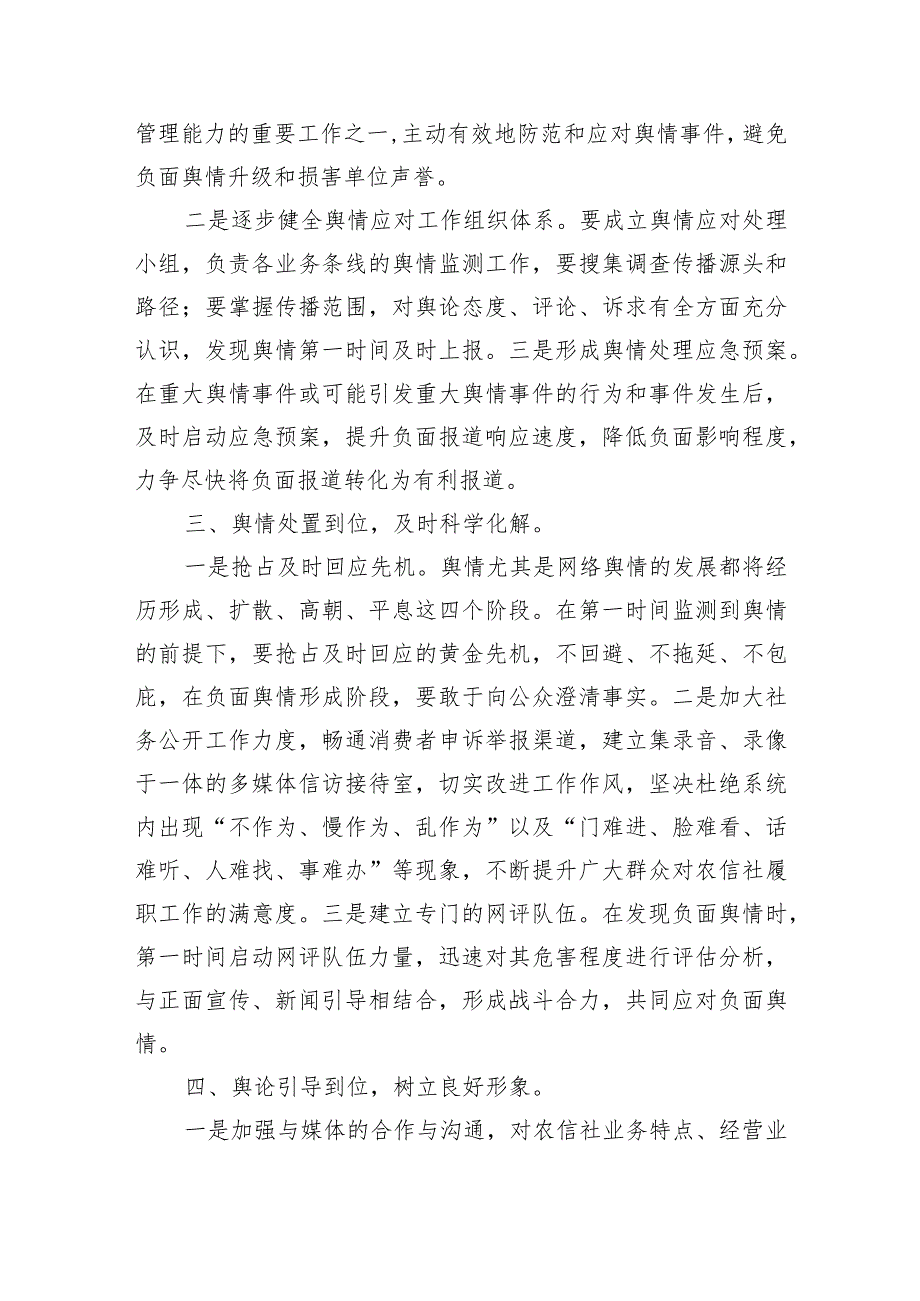 管理能力的重要工作之一,主动有效地防范和应对舆情事件，避免
负面舆情升级和损害单位声誉。
二是逐步健全舆情应对工作组织体系。要成立舆情应对处理
小组，负责各业务条线的舆情监测工作，要搜集调查传播源头和
路径；要掌握传播范围，对舆论态度、评论、诉求有全方面充分
认识，发现舆情第一时间及时上报。三是形成舆情处理应急预案。
在重大舆情事件或可能引发重大舆情事件的行为和事件发生后，
及时启动应急预案，提升负面报道响应速度，降低负面影响程度，
力争尽快将负面报道转化为有利报道。
三、舆情处置到位，及时科学化解。
一是抢占及时回应先机。舆情尤其是网络舆情的发展都将经
历形成、扩散、高朝、平息这四个阶段。在第一时间监测到舆情
的前提下，要抢占及时回应的黄金先机，不回避、不拖延、不包
庇，在负面舆情形成阶段，要敢于向公众澄清事实。二是加大社
务公开工作力度，畅通消费者申诉举报渠道，建立集录音、录像
于一体的多媒体信访接待室，切实改进工作作风，坚决杜绝系统
内出现“不作为、慢作为、乱作为”以及“门难进、脸难看、话
难听、人难找、事难办”等现象，不断提升广大群众对农信社履
职工作的满意度。三是建立专门的网评队伍。在发现负面舆情时，
第一时间启动网评队伍力量，迅速对其危害程度进行评估分析，
与正面宣传、新闻引导相结合，形成战斗合力，共同应对负面舆
情。
四、舆论引导到位，树立良好形象。
一是加强与媒体的合作与沟通，对农信社业务特点、经营业